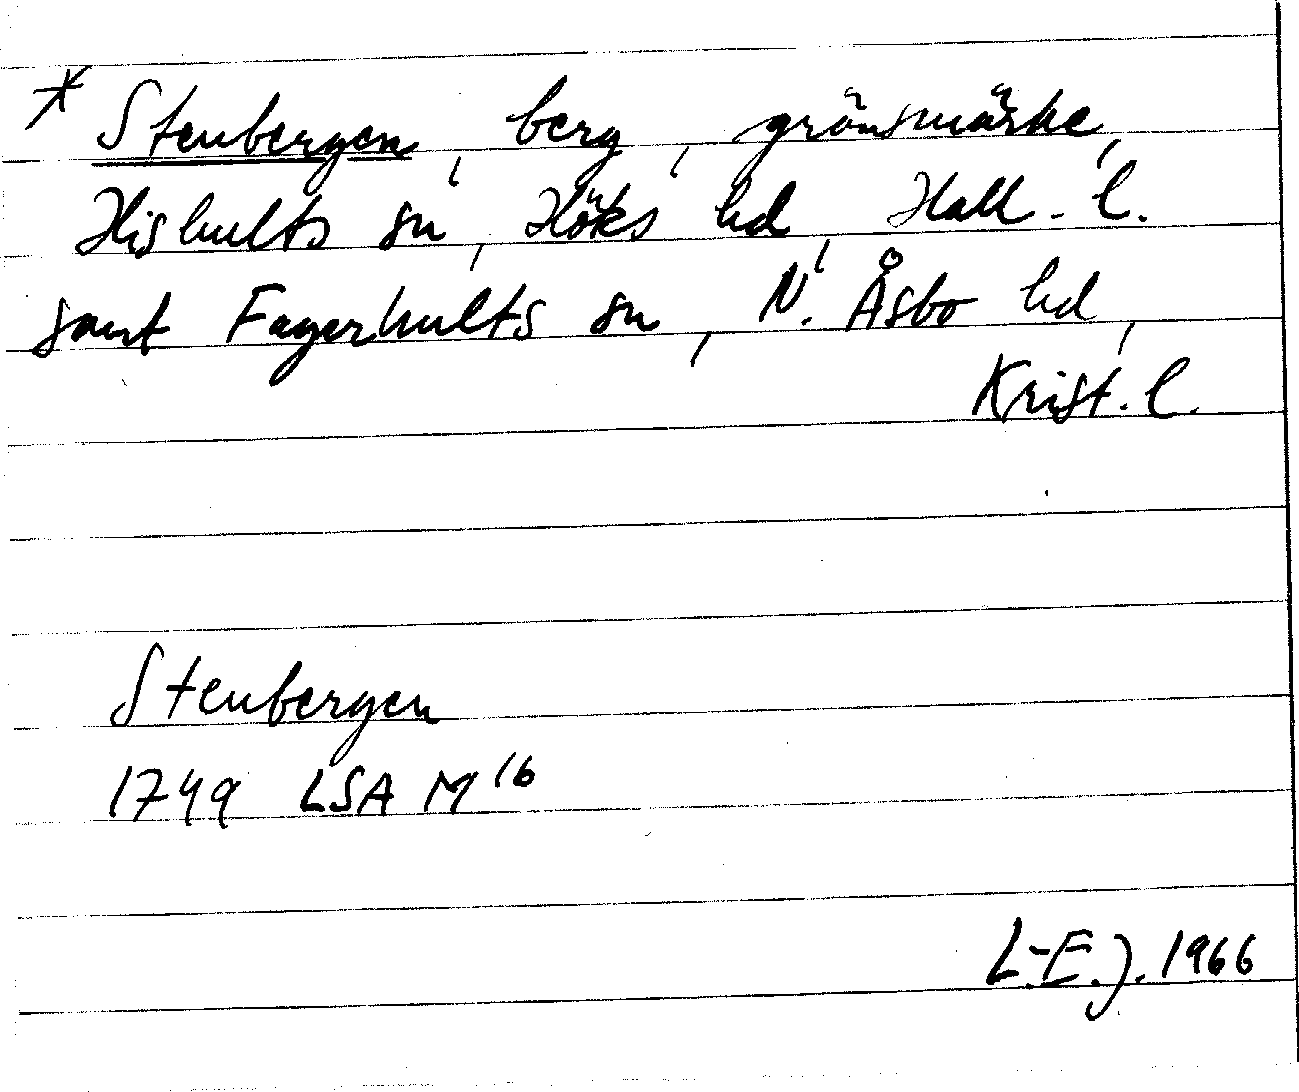 * Stenbergen, berg, gränsmärke,
Hishults sn, Höks hd, Hall. l.
samt Fagerhults sn, N. Åsbo hd,
Krist. l.
Stenbergen
1749 LSA M 16
L-E. J. 1966